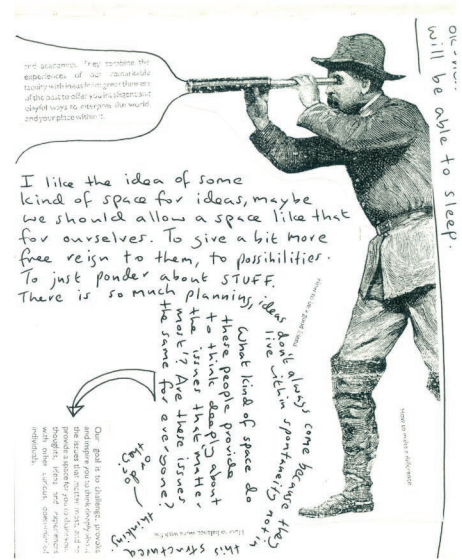 and academics. They combine the
experiences of our remarkable
faculty with ideas from great thinkers
of the past to offer you intelligent and
playful ways to interpret the world,
and your place within it.
will be able to sleep.
I like the idea of some
kind of space for ideas, maybe
we should allow a space like that
for ourselves. To give a bit more
free reign to them, to possibilities.
To just ponder about STUFF.
There is so much planning, ideas don't always come because they
live within spontaneity not in
this structured
thinking
What kind of space do
these people provide
to think deeply about
the issues that matter
most? Are these issues
the same for everyone?
or do
they
How to make a difference
Our goal is to challenge, provoke
and inspire you to think deeply about
the issues that matter most, and to
provide a space for you to share your
thoughts, ideas and experiences
with other curious
individuals.